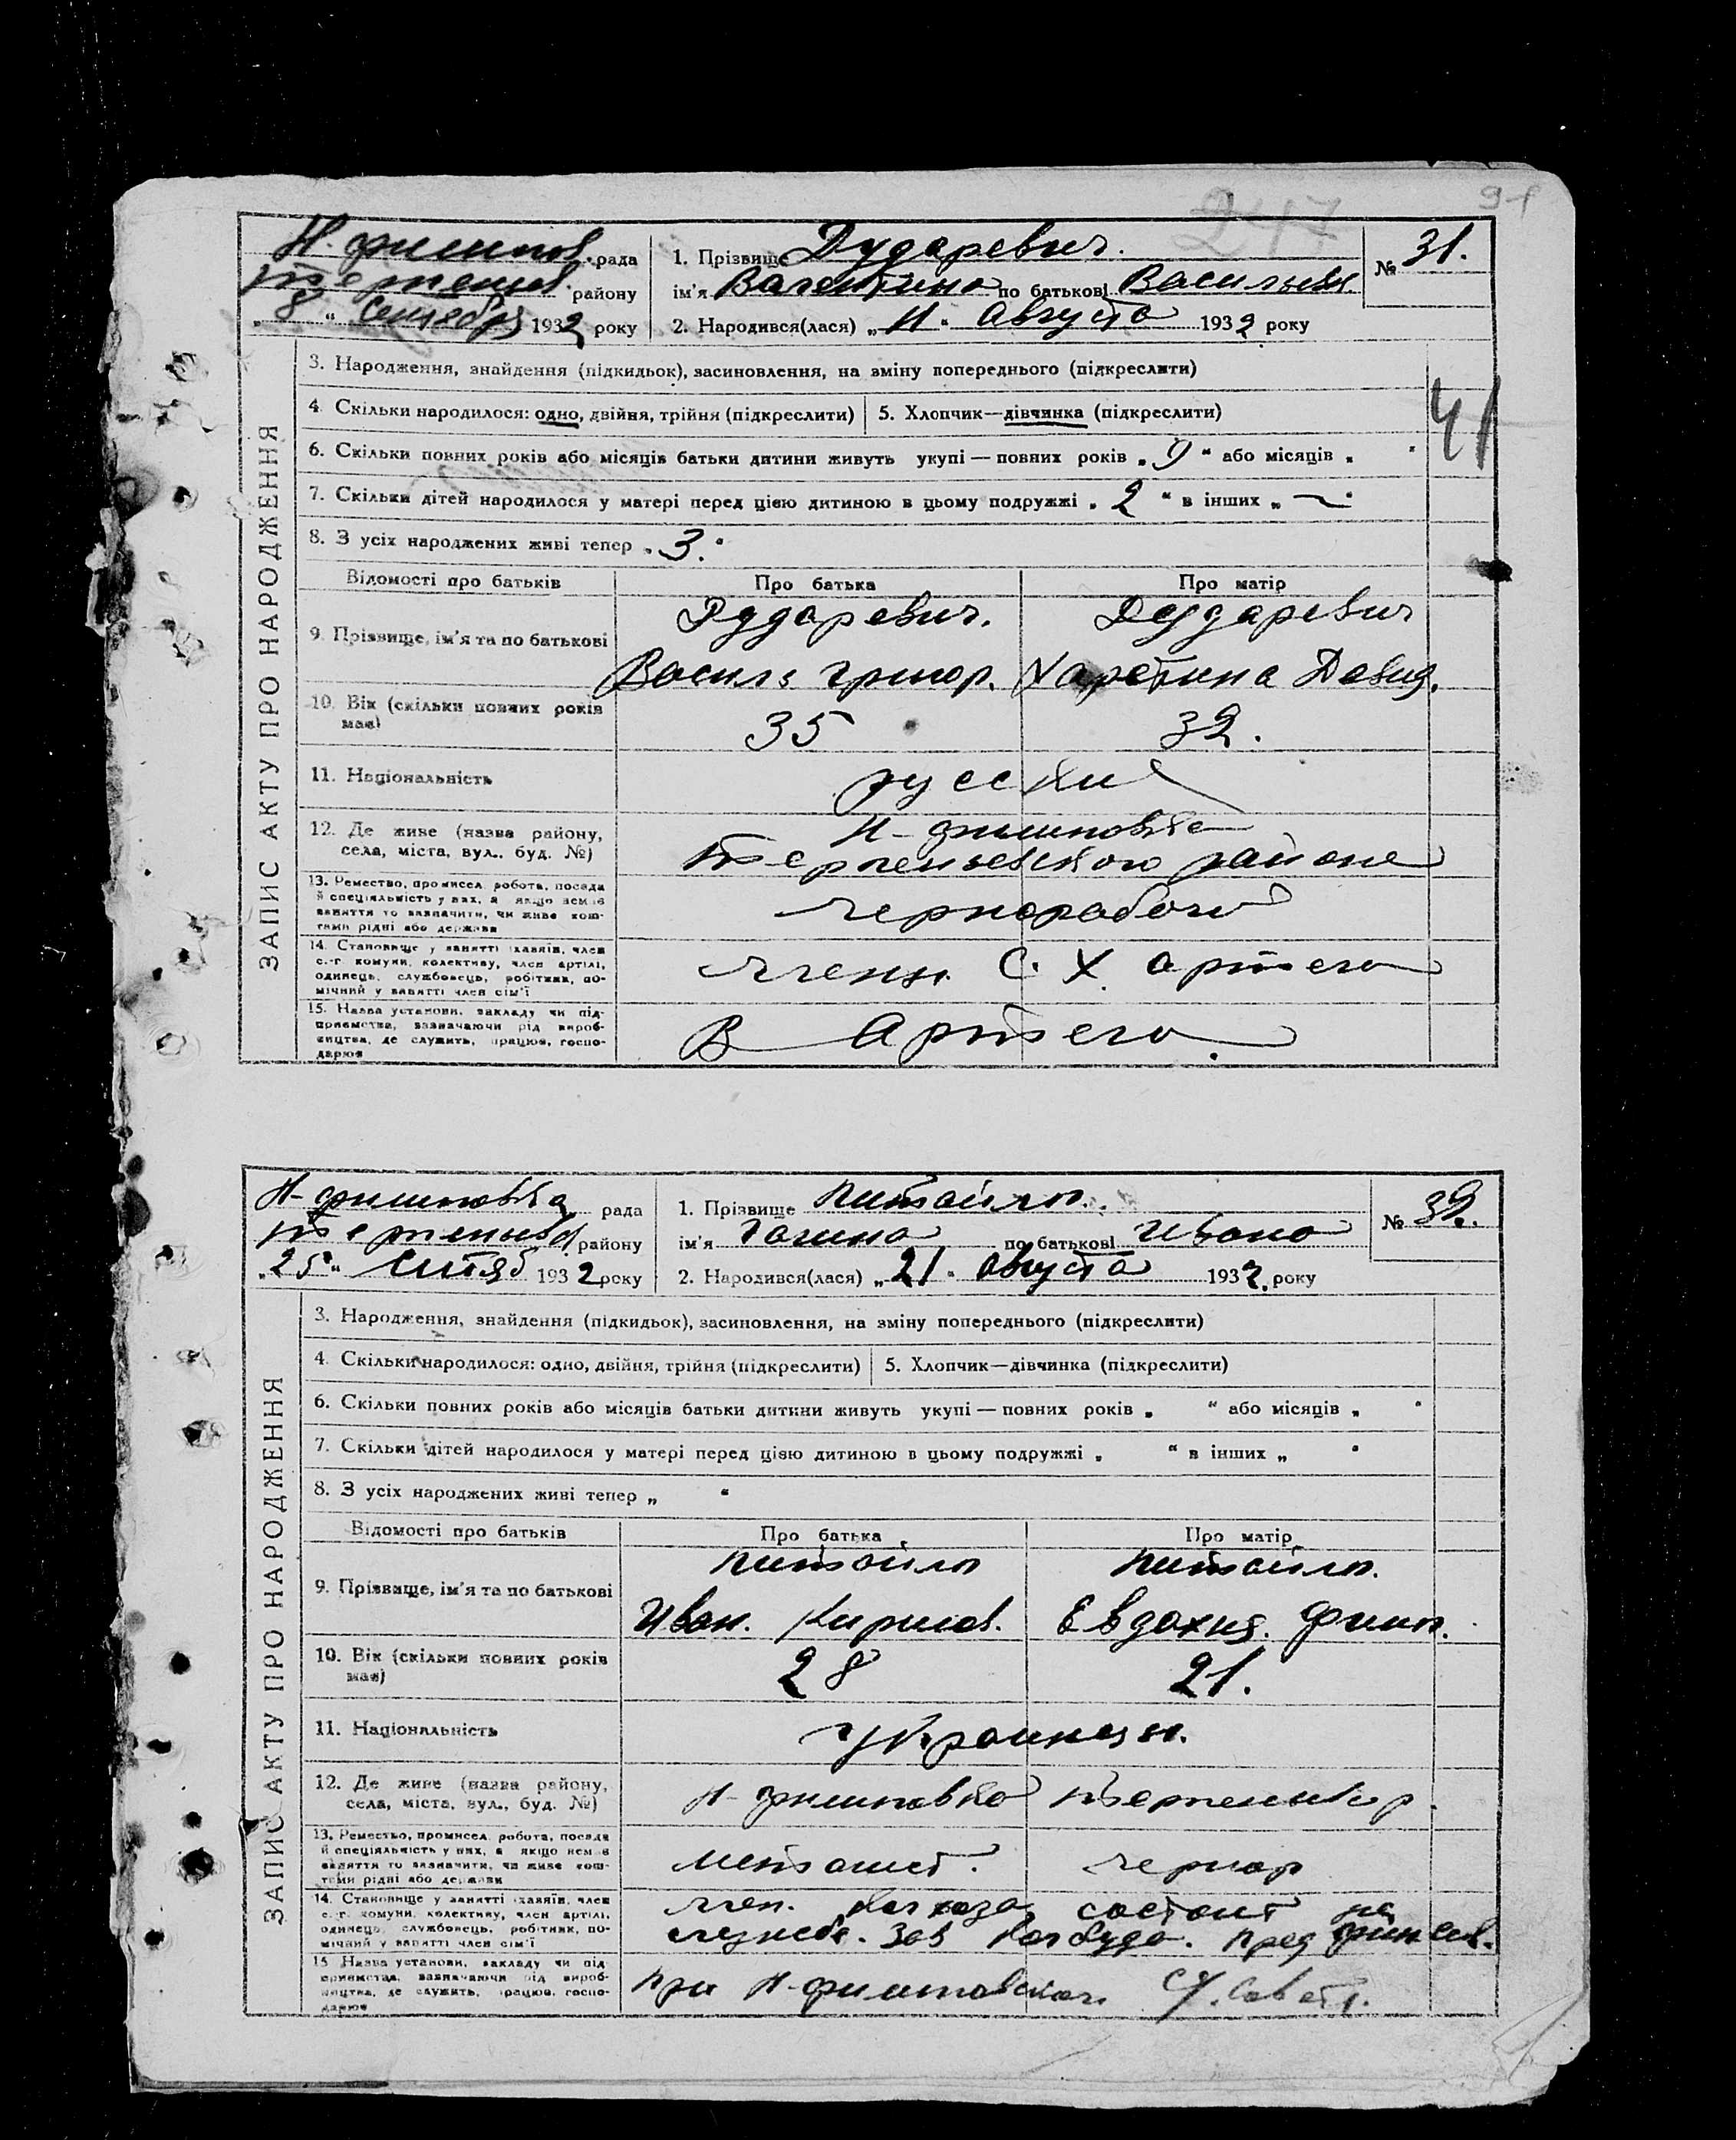 247
91
Н. филипов. рада
терпеньев. району
„8“ Сентября 1932 року
1. Прізвище Дударевич.
ім'я Валентина по батькові Васильев
2. Народився(лася) „11“ Августа 1932 року
№ 31.
ЗАПИС АКТУ ПРО НАРОДЖЕННЯ
3. Народження, знайдення (підкидьок), засиновлення, на зміну попереднього (підкреслити)
4. Скільки народилося: одно, двійня, трійня (підкреслити)
5. Хлопчик—дівчинка (підкреслити)
41
6. Скільки повних років або місяців батьки дитини живуть укупі — повних років „9“ або місяців „ “
7. Скільки дітей народилося у матері перед цією дитиною в цьому подружжі „2“ в інших „—“
8. З усіх народжених живі тепер „3.“
Відомості про батьків
Про батька
Про матір
9. Прізвище, ім'я та по батькові
Дударевич.
Василь григор.
Дударевич
Харетина Давид.
10. Вік (скільки повних років має)
35
32.
11. Національність
русский
12. Де живе (назва району,
села, міста, вул., буд. №)
Н-филиповка
терпеньевского района
13. Ремество, промисел, робота, посада
й спеціяльність у них, а якщо нема
заняття то зазначити, чи живе кош-
тами рідні або держави
чернорабочи
14. Становище у занятті хазяїн, член
с.-г. комуни, колективу, член артілі,
одинець, службовець, робітник, по-
мічний у занятті член сім'ї
члены С. Х. артели
15. Назва установи, закладу чи під-
приємства, зазначаючи рід вироб-
ництва, де служить, працює, госпо-
дарює
В Артели.
Н-филиповка рада
терпеньев району
„25“ Сентяб 1932 року
1. Прізвище Питайло.
ім'я Галина по батькові Ивано
2. Народився(лася) „21“ Августа 1932. року
№ 32.
ЗАПИС АКТУ ПРО НАРОДЖЕННЯ
3. Народження, знайдення (підкидьок), засиновлення, на зміну попереднього (підкреслити)
4. Скільки народилося: одно, двійня, трійня (підкреслити)
5. Хлопчик—дівчинка (підкреслити)
6. Скільки повних років або місяців батьки дитини живуть укупі — повних років „ “ або місяців „ “
7. Скільки дітей народилося у матері перед цією дитиною в цьому подружжі „ “ в інших „ “
8. З усіх народжених живі тепер „ “
Відомості про батьків
Про батька
Про матір
9. Прізвище, ім'я та по батькові
Питайло
Иван. Кирилов.
Питайло.
Евдокия. Филип.
10. Вік (скільки повних років має)
28
21.
11. Національність
украинцы.
12. Де живе (назва району,
села, міста, вул., буд. №)
Н-филиповка терпеньев р.
13. Ремество, промисел, робота, посада
й спеціяльність у них, а якщо нема
заняття то зазначити, чи живе кош-
тами рідні або держави
чернор
14. Становище у занятті хазяїн, член
с.-г. комуни, колективу, член артілі,
одинець, службовець, робітник, по-
мічний у занятті член сім'ї
член. Колхоза состоит на
службе. Зав Пред
15. Назва установи, закладу чи під-
приємства, зазначаючи рід вироб-
ництва, де служить, працює, госпо-
дарює
При Н-филиповском С/. Совете.